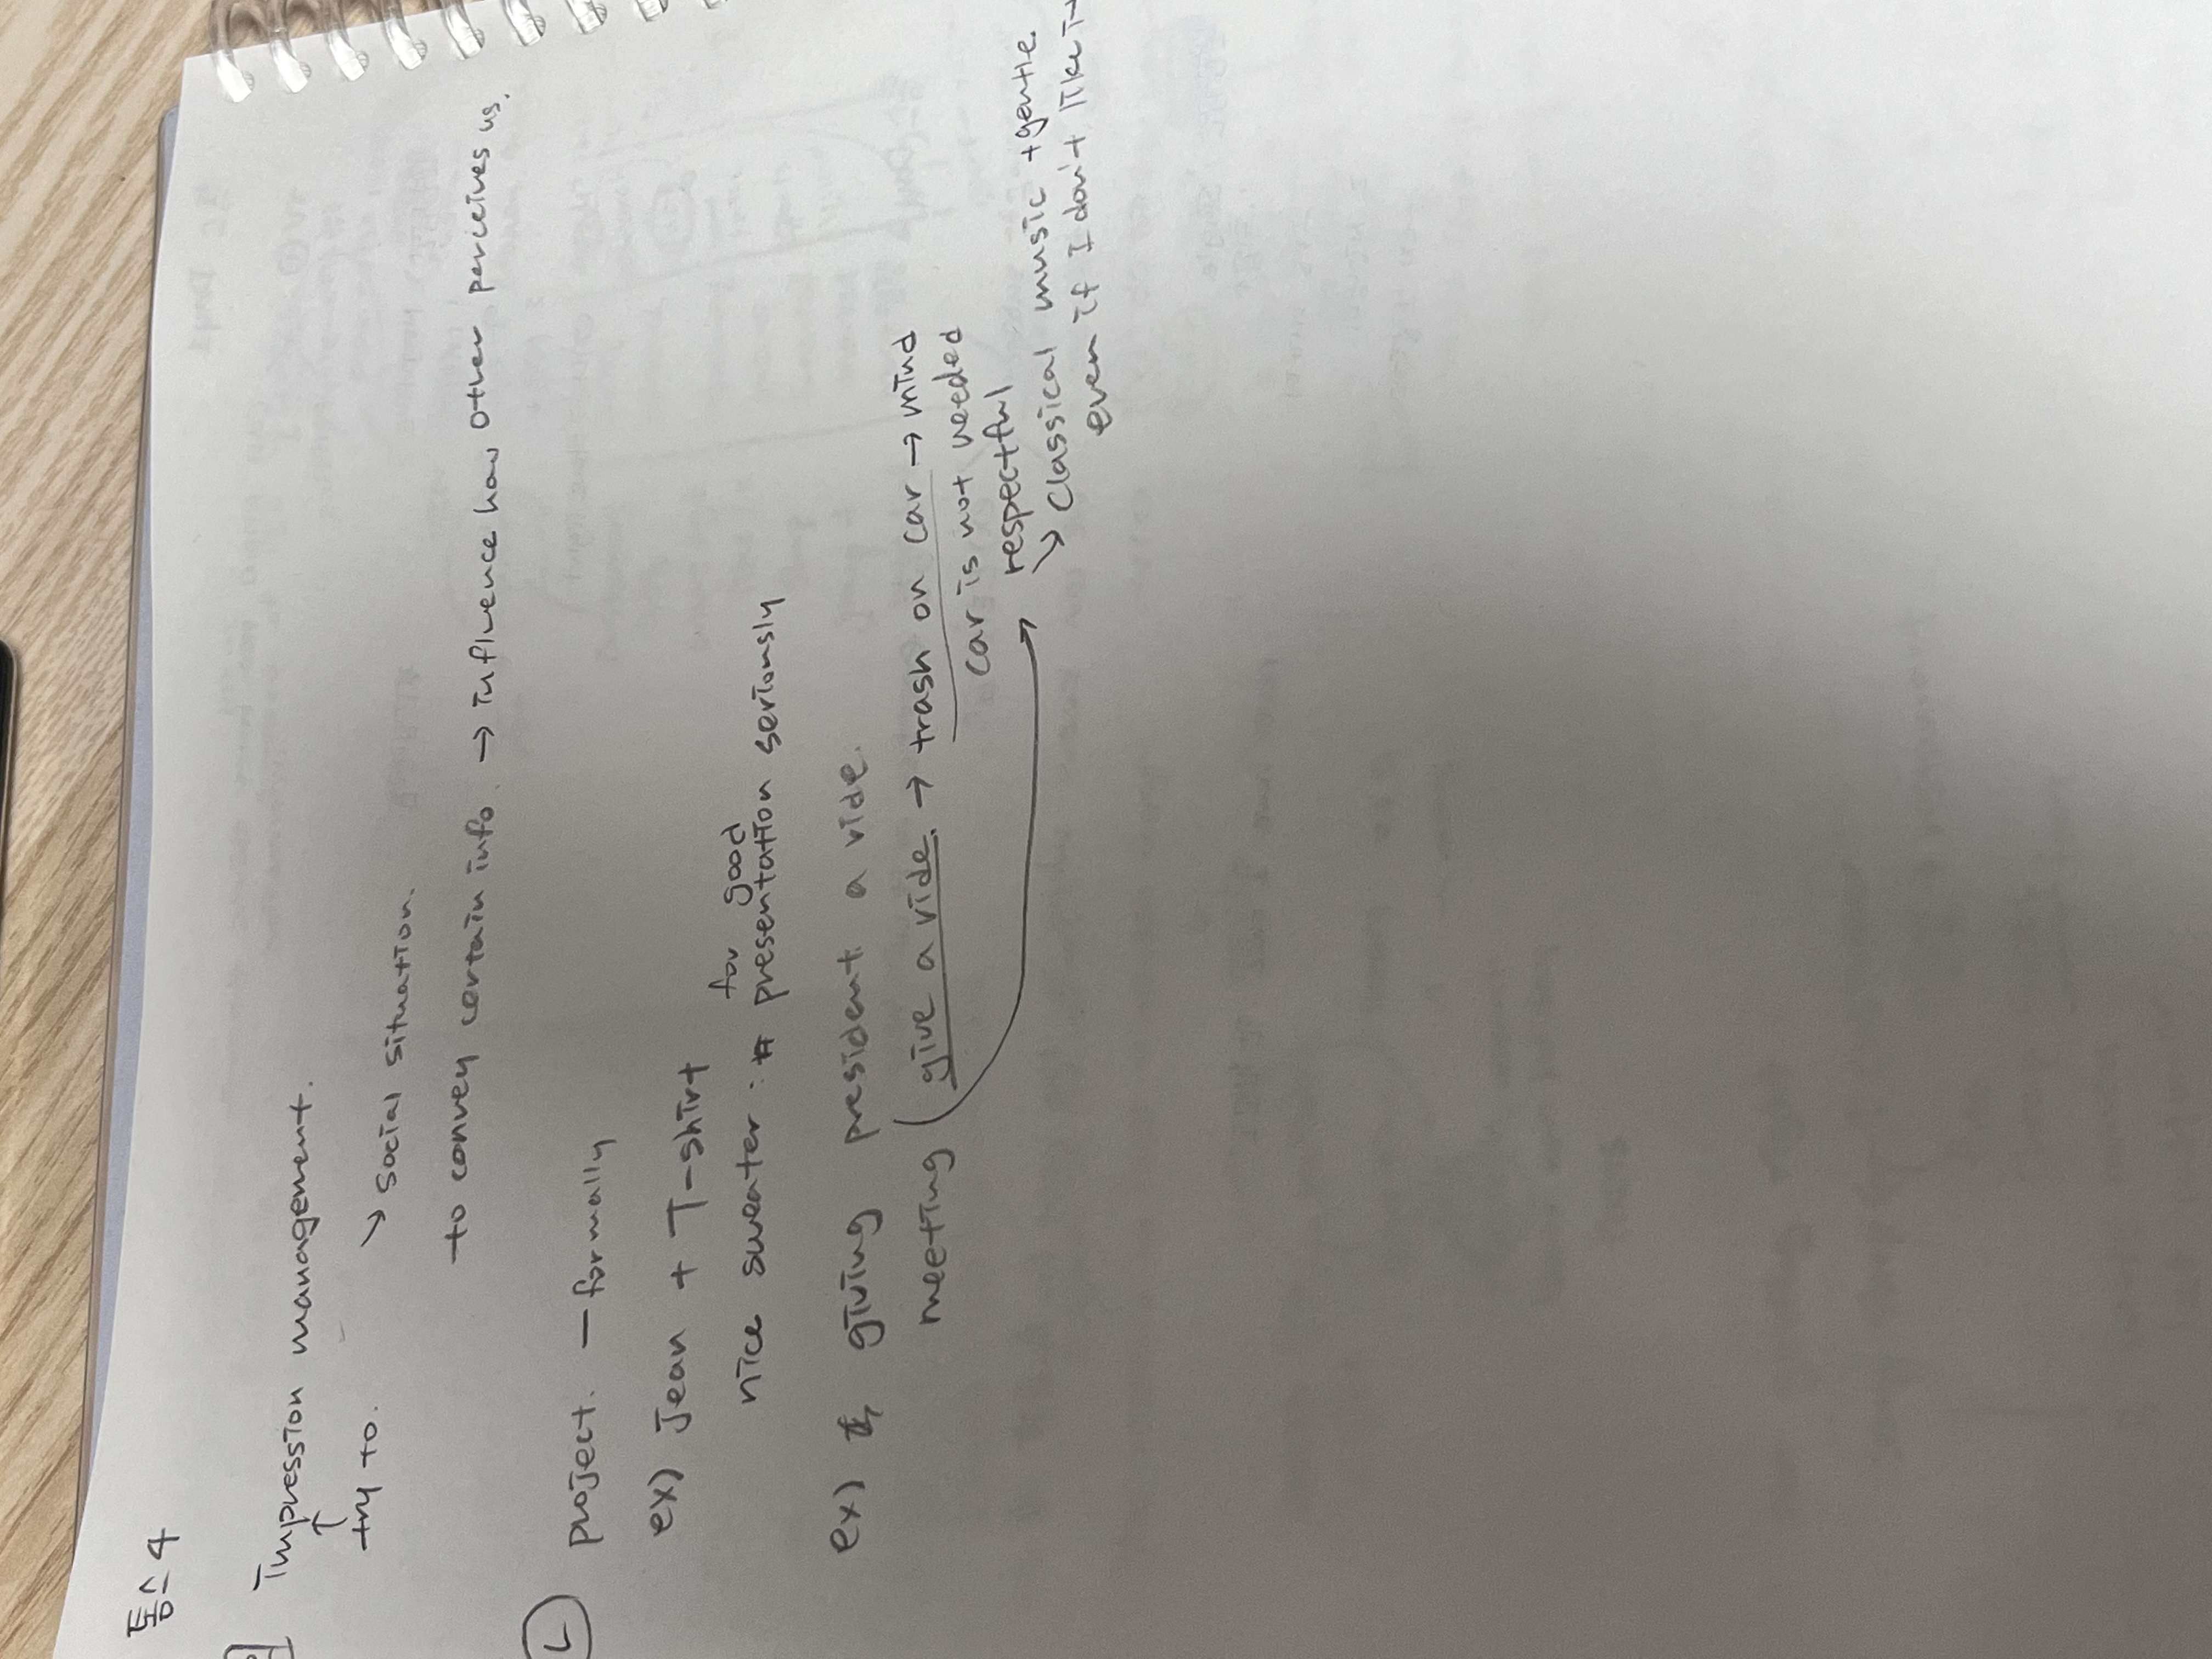 톰스 4
Impression management.
↑
try to. ↘ social situation.
to convey certain info. → influence how other perceives us.
Ⓛ project. — formally
ex) Jean + T-shirt
for good
nice sweater : presentation seriously
ex) giving president a ride.
meeting ( give a ride. → trash on car → mind
car is not needed
respectful
↘ classical music + gentle.
even if I don't like it